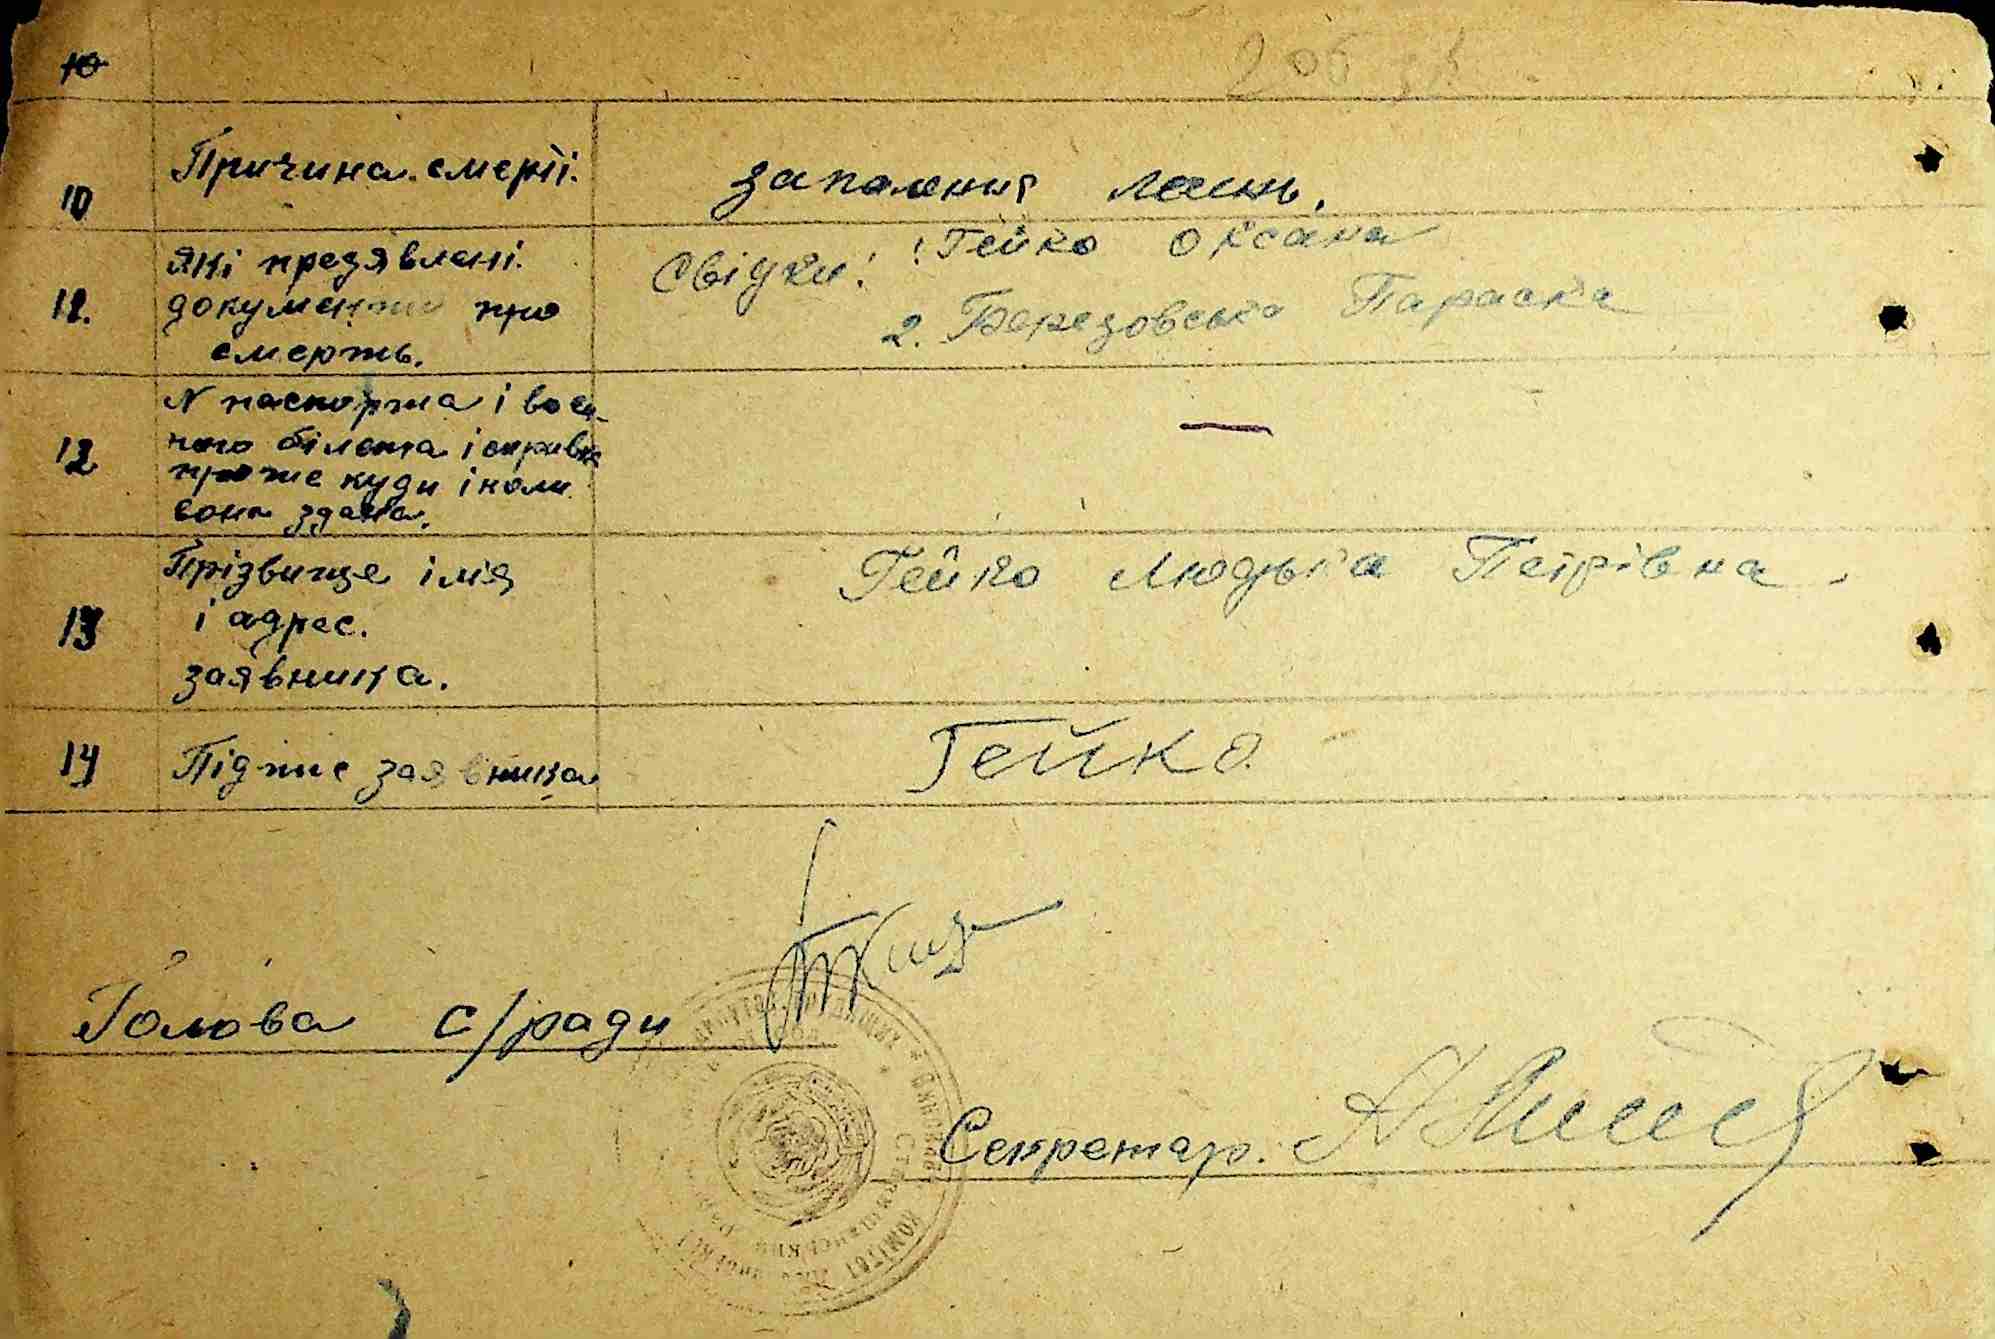 10
10 Причина смерті. запалення легень.
11. Які предявлені документи про смерть.
Свідки: 1 Гейко Оксана
2. Березовська Параска
12 N паспорта і воєн-
ного білета і справка
про те куди і коли
вони здана. —
13 Прізвище імя
і адрес.
заявника.
Гейко Людька Петрівна.
14 Підпис заявника Гейко
Голова с/ради
Секретар.